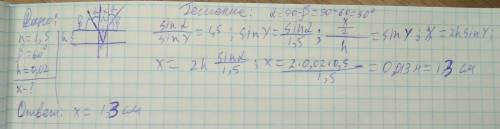 Дано:
n = 1,5
β = 60°
h = 0,02
x - ?
h
Решение: α = 90 - β = 90° - 60 = 30°
sinα/sinγ = 1,5; sinγ = sinα/1,5; x/2/h = sinγ; x = 2h sinγ;
x = 2h sinα/1,5; x = 2·0,02·0,5/1,5 = 0,013 м = 1,3 см
Ответ: x = 1.3 см